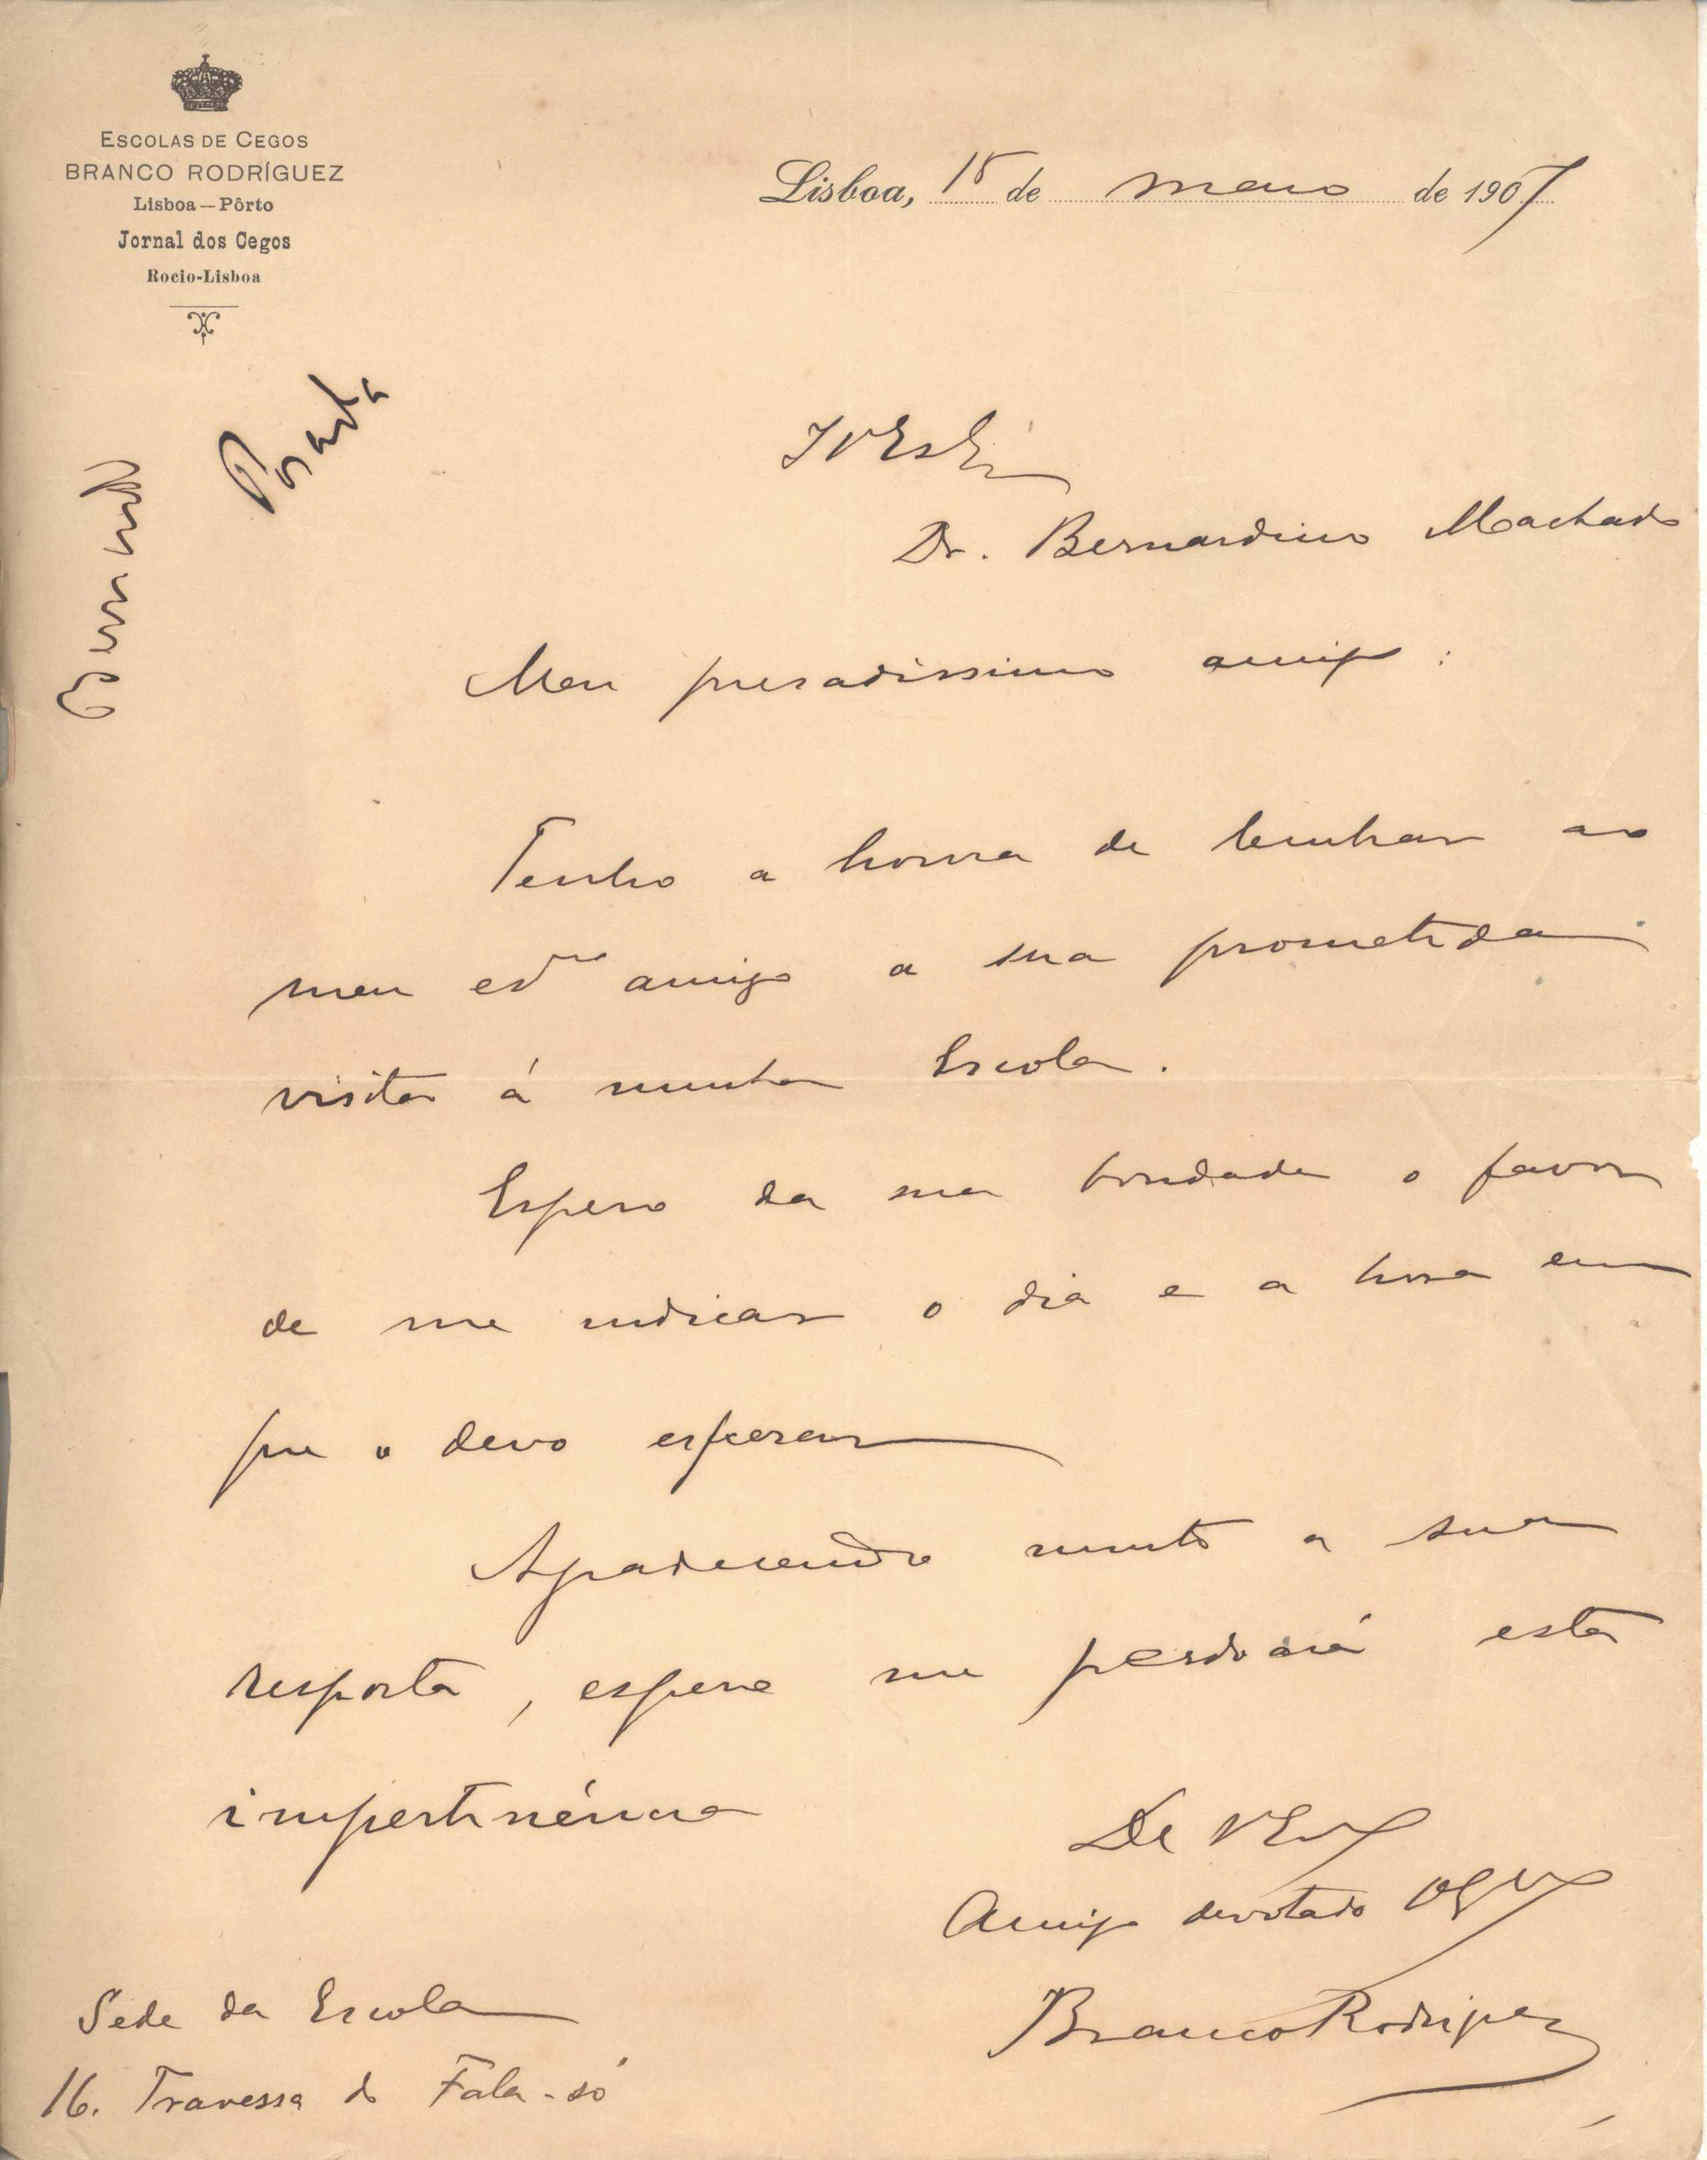 ESCOLAS DE CEGOS
BRANCO RODRÍGUEZ
Lisboa—Pôrto
Jornal dos Cegos
Rocio-Lisboa
Lisboa, 15 de maio de 1907
Dr. Bernardino Machado
Meu presadissimo amigo :
Tenho a honra de lembrar ao
meu amigo a sua prometida
visita á minha Escola.
Espero da sua bondade o favor
de me indicar o dia e a hora em
que o devo esperar
Agradecendo muito a sua
resposta, espero me perdoará esta
impertinéncia
De V Exª
Amigo devotado
Branco Rodriguez
Sede da Escola
16. Travessa do Fala-só